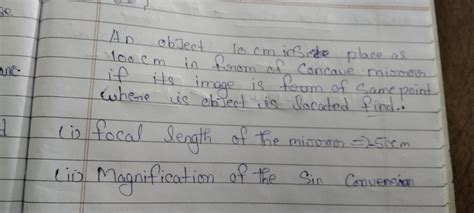 An object 10 cm is place as
100 cm in from of concave mirror
if its image is form of same point
where is object is located find..
(i) focal length of the mirror = 250cm
(ii) Magnification of the Sin Convension